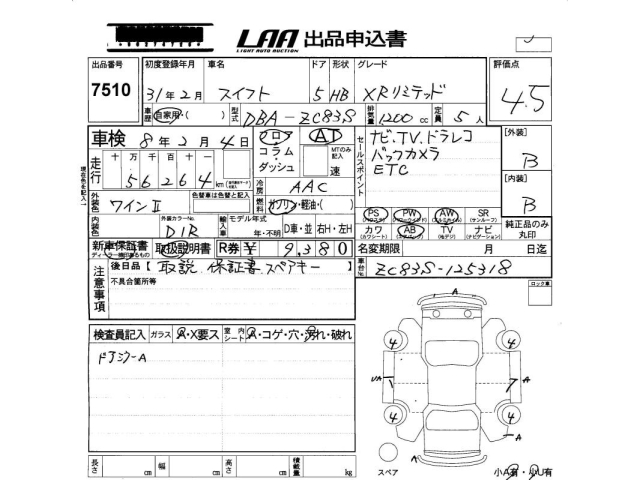 LAA 出品申込書
LIGHT AUTO AUCTION
出品番号 初度登録年月 車名 ドア 形状 グレード 評価点
7510 31年2月 スイフト 5 HB XRリミテッド 4.5
車歴 自家用・( ) 型式 DBA-ZC83S 排気量 1200cc 定員 5人
車検 8年2月4日 フロア コラム・ダッシュ AT MTのみ記入 速
セールスポイント ナビ、TV、ドラレコ
バックカメラ
ETC
[外装] B
[内装] B
走行 十万千百十 56264 km
冷房 AAC
燃料 ガソリン・軽油・( )
外装色 ワインⅡ 色替車は色替と記入
PS PW AW SR
(パワステ) (パワーウインド) (アルミホイル) (サンルーフ)
カワ AB TV ナビ
(カワシート) (エアバッグ) (テレビ) (ナビゲーション)
純正品のみ丸印
内装色 外装カラーNo. D1R 輸入車 モデル年式 年・不明 D車・並 右H・左H
新車保証書 取扱説明書 R券 ¥ 9,380 名変期限 月 日迄
注意事項 後日品【 取説、保証書、スペアキー
不具合箇所等
車台No. ZC83S-125318
ロック車
検査員記入 ガラス A・X要ス 室内シート A・コゲ・穴・汚れ・破れ
ドアミラーA
A
4 4
UA A
4 4
A
A
長さ cm 幅 cm 高さ cm 積載量 kg
スペア 小A有・小U有